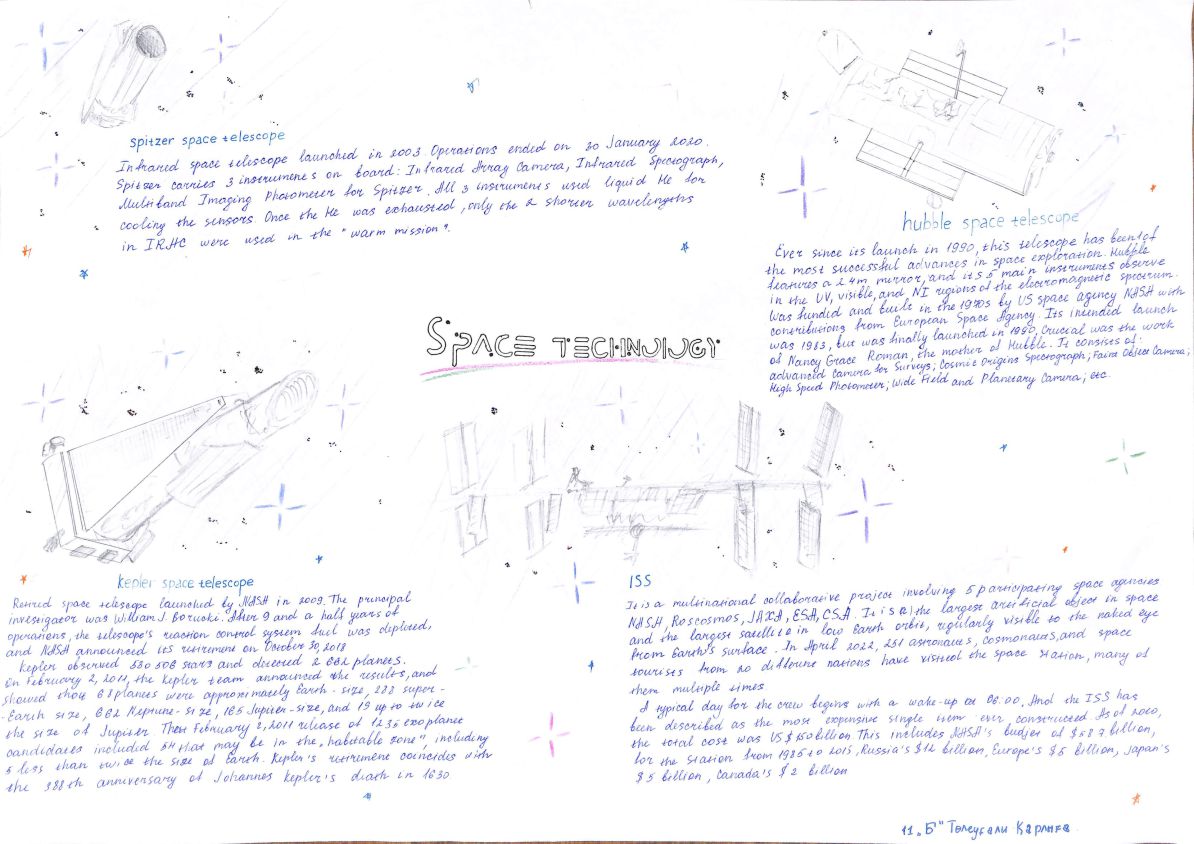 spitzer space telescope
Infrared space telescope launched in 2003. Operations ended on 30 January 2020.
Spitzer carries 3 instruments on board: Infrared Array Camera, Infrared Spectograph,
Multiband Imaging Photometer for Spitzer. All 3 instruments used liquid He for
cooling the sensors. Once the He was exhausted, only the 2 shorter wavelengths
in IRAC were used in the "warm mission".
hubble space telescope
Ever since its launch in 1990, this telescope has been 1 of
the most successful advances in space exploration. Hubble
features a 2.4m mirror, and its 5 main instruments observe
in the UV, visible, and NI regions of the electromagnetic spectrum.
Was funded and built in the 1970s by US space agency NASA with
contributions from European Space Agency. Its intended launch
was 1983, but was finally launched in 1990, Crucial was the work
of Nancy Grace Roman, the mother of Hubble. It consists of:
advanced Camera for Surveys; Cosmic Origins Spectograph; Faint Object Camera;
High Speed Photometer; Wide Field and Planetary Camera; etc.
SPACE TECHNOLOGY
kepler space telescope
Retired space telescope launched by NASA in 2009. The principal
investigator was William J. Borucki. After 9 and a half years of
operations, the telescope's reaction control system fuel was depleted,
and NASA announced its retirement on October 30, 2018
Kepler observed 530 506 stars and detected 2 662 planets.
On February 2, 2011, the Kepler team announced the results, and
showed that 68 planets were approximately Earth-size, 288 super-
-Earth size, 662 Neptune-size, 165 Jupiter-size, and 19 up to twice
the size of Jupiter. Then February 2, 2011 release of 1235 exoplanet
candidates included 54 that may be in the „habitable zone", including
5 less than twice the size of Earth. Kepler's retirement coincides with
the 388th anniversary of Johannes Kepler's death in 1630
ISS
It is a multinational collaborative project involving 5 participating space agencies
NASA, Roscosmos, JAXA, ESA, CSA. It is the largest artificial object in space
and the largest satellite in low Earth orbit, regularly visible to the naked eye
from Earth's surface. In April 2022, 251 astronauts, cosmonauts, and space
tourists from 20 different nations have visited the space station, many of
them multiple times
A typical day for the crew begins with a wake-up at 06:00. And the ISS has
been described as the most expensive single item ever constructed As of 2010,
the total cost was US $ 150 billion This includes NASA's budget of $ 58.7 billion,
for the station from 1985 to 2015, Russia's $ 12 billion, Europe's $ 5 billion, Japan's
$ 5 billion, Canada's $ 2 billion
11 „Б" Төлеуғали Карлыға